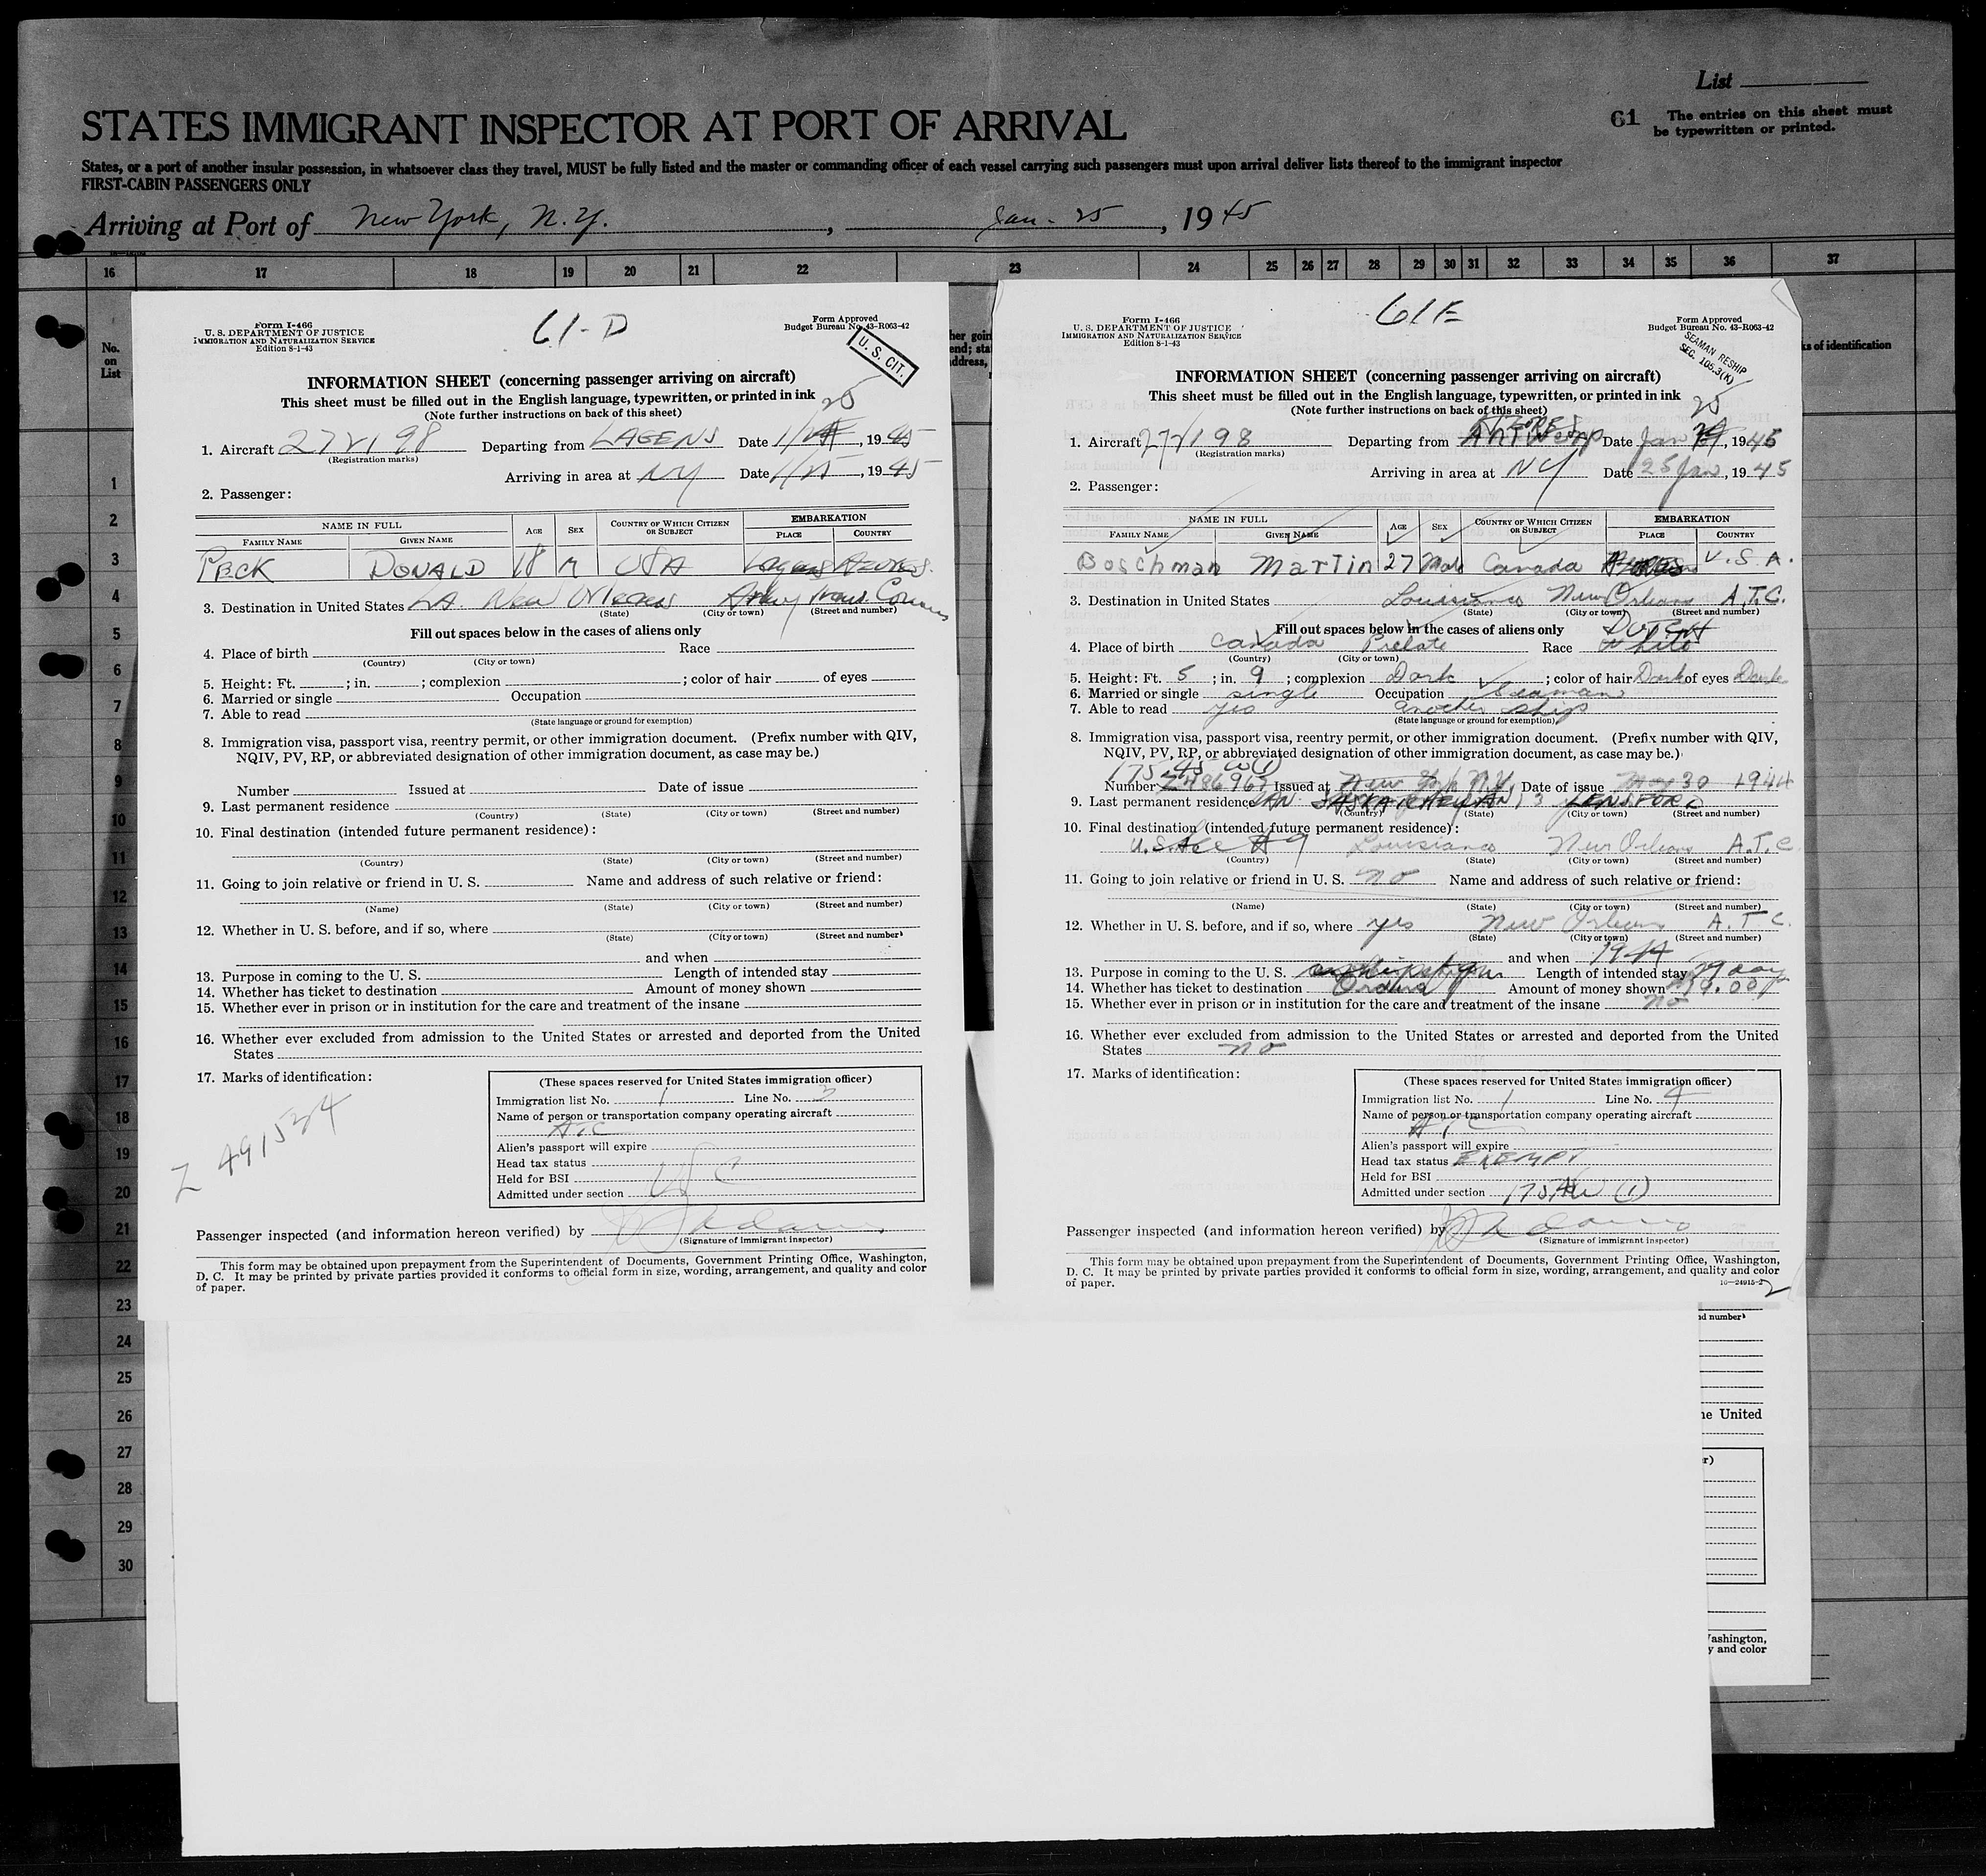 List
STATES IMMIGRANT INSPECTOR AT PORT OF ARRIVAL
61 The entries on this sheet must
be typewritten or printed.
States, or a port of another insular possession, in whatsoever class they travel, MUST be fully listed and the master or commanding officer of each vessel carrying such passengers must upon arrival deliver lists thereof to the immigrant inspector
FIRST-CABIN PASSENGERS ONLY
Arriving at Port of New York, N.Y. , Jan. 25 , 1945
16 17 18 19 20 21 22 23 24 25 26 27 28 29 30 31 32 33 34 35 36 37
No.
on
List
1
2
3
4
5
6
7
8
9
10
11
12
13
14
15
16
17
18
19
20
21
22
23
24
25
26
27
28
29
30
Form I-466
U. S. DEPARTMENT OF JUSTICE
IMMIGRATION AND NATURALIZATION SERVICE
Edition 8-1-43
61-D
Form Approved
Budget Bureau No. 43-R063-42
U. S. CIT.
INFORMATION SHEET (concerning passenger arriving on aircraft)
This sheet must be filled out in the English language, typewritten, or printed in ink
(Note further instructions on back of this sheet)
25
1. Aircraft 272198 Departing from LAGENS Date 1/ , 1945
(Registration marks)
Arriving in area at NY Date 1/25 , 1945
2. Passenger:
NAME IN FULL AGE SEX COUNTRY OF WHICH CITIZEN OR SUBJECT EMBARKATION
FAMILY NAME GIVEN NAME PLACE COUNTRY
PECK DONALD 18 M USA Lagens AZORES.
3. Destination in United States LA. New Orleans Army Trans Comm
(State) (City or town) (Street and number)
Fill out spaces below in the cases of aliens only
4. Place of birth Race
(Country) (City or town)
5. Height: Ft. ; in. ; complexion ; color of hair of eyes
6. Married or single Occupation
7. Able to read
(State language or ground for exemption)
8. Immigration visa, passport visa, reentry permit, or other immigration document. (Prefix number with QIV,
NQIV, PV, RP, or abbreviated designation of other immigration document, as case may be.)
Number Issued at Date of issue
9. Last permanent residence
(Country) (State) (City or town) (Street and number)
10. Final destination (intended future permanent residence):
(Country) (State) (City or town) (Street and number)
11. Going to join relative or friend in U. S. Name and address of such relative or friend:
(Name) (State) (City or town) (Street and number)
12. Whether in U. S. before, and if so, where
(State) (City or town) (Street and number)
and when
13. Purpose in coming to the U. S. Length of intended stay
14. Whether has ticket to destination Amount of money shown
15. Whether ever in prison or in institution for the care and treatment of the insane
16. Whether ever excluded from admission to the United States or arrested and deported from the United
States
17. Marks of identification:
Z 491534
(These spaces reserved for United States immigration officer)
Immigration list No. 1 Line No. 3
Name of person or transportation company operating aircraft
ATC
Alien's passport will expire
Head tax status
Held for BSI
Admitted under section USC
Passenger inspected (and information hereon verified) by Adams
(Signature of immigrant inspector)
This form may be obtained upon prepayment from the Superintendent of Documents, Government Printing Office, Washington,
D. C. It may be printed by private parties provided it conforms to official form in size, wording, arrangement, and quality and color
of paper.
Form I-466
U. S. DEPARTMENT OF JUSTICE
IMMIGRATION AND NATURALIZATION SERVICE
Edition 8-1-43
61E
Form Approved
Budget Bureau No. 43-R063-42
SEAMAN RESHIP
SEC. 105.3(K)
INFORMATION SHEET (concerning passenger arriving on aircraft)
This sheet must be filled out in the English language, typewritten, or printed in ink
(Note further instructions on back of this sheet)
AZORES 25
1. Aircraft 272198 Departing from Antwerp Date Jan , 1945
(Registration marks)
Arriving in area at NY Date 25 Jan, 1945
2. Passenger:
NAME IN FULL AGE SEX COUNTRY OF WHICH CITIZEN OR SUBJECT EMBARKATION
FAMILY NAME GIVEN NAME PLACE COUNTRY
Boschman Martin 27 Male Canada U.S.A.
3. Destination in United States Louisiana New Orleans A.T.C.
(State) (City or town) (Street and number)
Fill out spaces below in the cases of aliens only DUTCH
4. Place of birth Canada Prelate Race White
(Country) (City or town)
5. Height: Ft. 5 ; in. 9 ; complexion Dark ; color of hair Dark of eyes Dark
6. Married or single single Occupation Seaman
7. Able to read yes another ship
(State language or ground for exemption)
8. Immigration visa, passport visa, reentry permit, or other immigration document. (Prefix number with QIV,
NQIV, PV, RP, or abbreviated designation of other immigration document, as case may be.)
175.45 W (1)
Number Z486967 Issued at New York N.Y. Date of issue May 30 1944
9. Last permanent residence CAN SASKATCHEWAN
(Country) (State) (City or town) (Street and number)
10. Final destination (intended future permanent residence):
U.S. Louisiana New Orleans A.T.C
(Country) (State) (City or town) (Street and number)
11. Going to join relative or friend in U. S. no Name and address of such relative or friend:
(Name) (State) (City or town) (Street and number)
12. Whether in U. S. before, and if so, where yes New Orleans A.T.C.
(State) (City or town) (Street and number)
and when 1944
13. Purpose in coming to the U. S. Length of intended stay 29 day
14. Whether has ticket to destination Orders Amount of money shown
15. Whether ever in prison or in institution for the care and treatment of the insane no
16. Whether ever excluded from admission to the United States or arrested and deported from the United
States no
17. Marks of identification:
(These spaces reserved for United States immigration officer)
Immigration list No. 1 Line No. 4
Name of person or transportation company operating aircraft
ATC
Alien's passport will expire
Head tax status EXEMPT
Held for BSI
Admitted under section 175 (1)
Passenger inspected (and information hereon verified) by Adams
(Signature of immigrant inspector)
This form may be obtained upon prepayment from the Superintendent of Documents, Government Printing Office, Washington,
D. C. It may be printed by private parties provided it conforms to official form in size, wording, arrangement, and quality and color
of paper.
16—24915-2
2
ks of identification
nd number)
he United
r)
Washington,
y and color